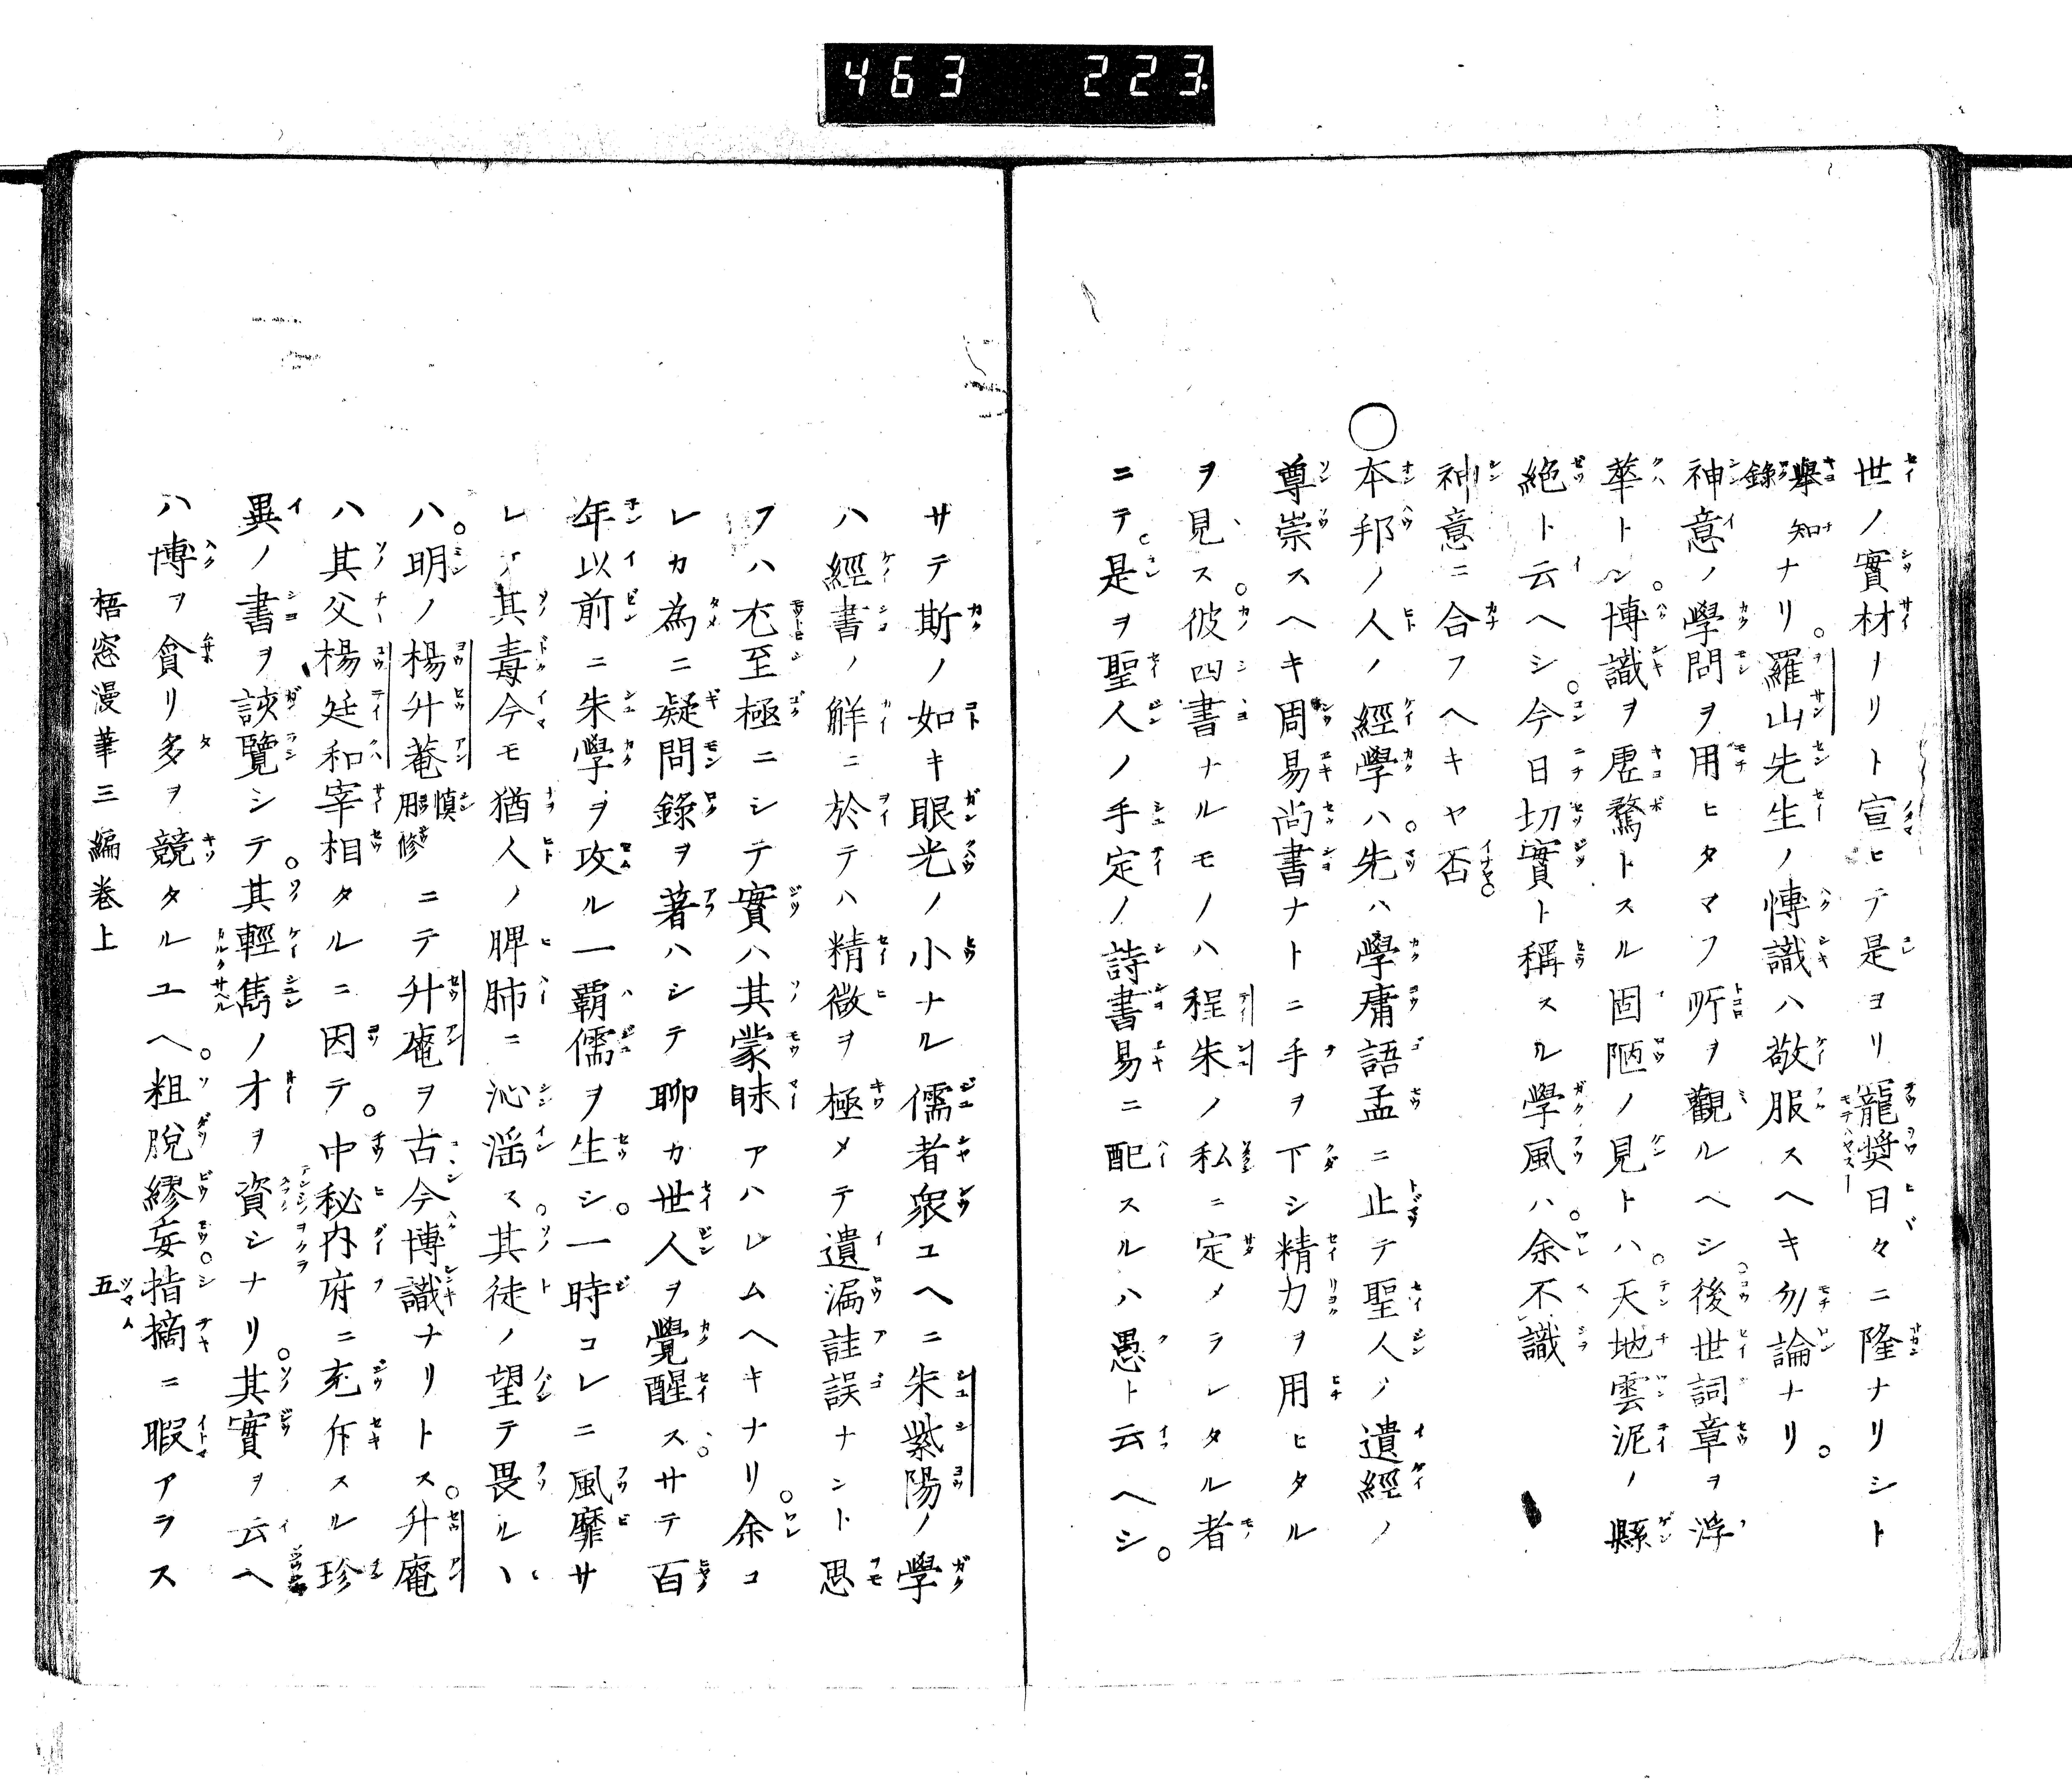 463 223
世ノ實材ノリト宣ヒテ是ヨリ寵奬日々ニ隆ナリシト
擧知錄ナリ羅山先生ノ博識ハ敬服スヘキ勿論ナリ。
神意ノ學問ヲ用ヒタマフ所ヲ觀ルヘシ後世詞章ヲ浮
華トシ博識ヲ虚騖トスル固陋ノ見トハ天地雲泥ノ縣
絶ト云ヘシ今日切實ト稱スル學風ハ余不識
神意ニ合フヘキヤ否
○本邦ノ人ノ經學ハ先ハ學庸語孟ニ止テ聖人ノ遺經ノ
尊崇スヘキ周易尚書ナトニ手ヲ下シ精力ヲ用ヒタル
ヲ見ス彼四書ナルモノハ程朱ノ私ニ定メラレタル者
ニテ是ヲ聖人ノ手定ノ詩書易ニ配スルハ愚ト云ヘシ。
サテ斯ノ如キ眼光ノ小ナル儒者衆ユヘニ朱紫陽ノ學
ハ經書ノ解ニ於テハ精微ヲ極メテ遺漏詿誤ナシト思
フハ尤至極ニシテ實ハ其蒙昧アハレムヘキナリ余コ
レカ為ニ疑問錄ヲ著ハシテ聊カ世人ヲ覺醒スサテ百
年以前ニ朱學ヲ攻ル一覇儒ヲ生シ一時コレニ風靡サ
レテ其毒今モ猶人ノ脾肺ニ沁滛ス其徒ノ望テ畏ルヽ
ハ明ノ楊升菴愼用修ニテ升庵ヲ古今博識ナリトス升庵
ハ其父楊廷和宰相タルニ因テ中秘内府ニ充斥スル珍
異ノ書ヲ該覽シテ其輕雋ノ才ヲ資シナリ其實ヲ云ヘ
ハ博ヲ貪リ多ヲ競タルユヘ粗脫繆妄指摘ニ暇アラス
梧窓漫筆三編卷上 五